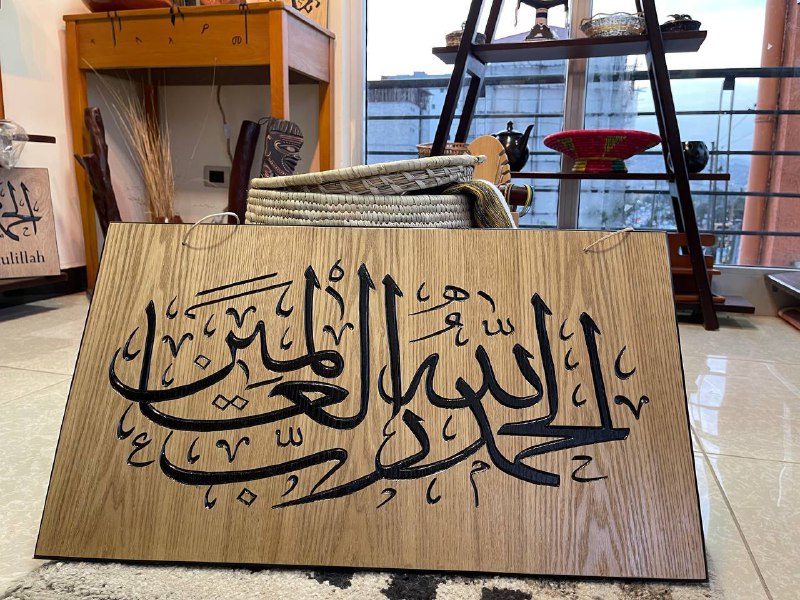 الحمد لله رب العالمين
ulillah